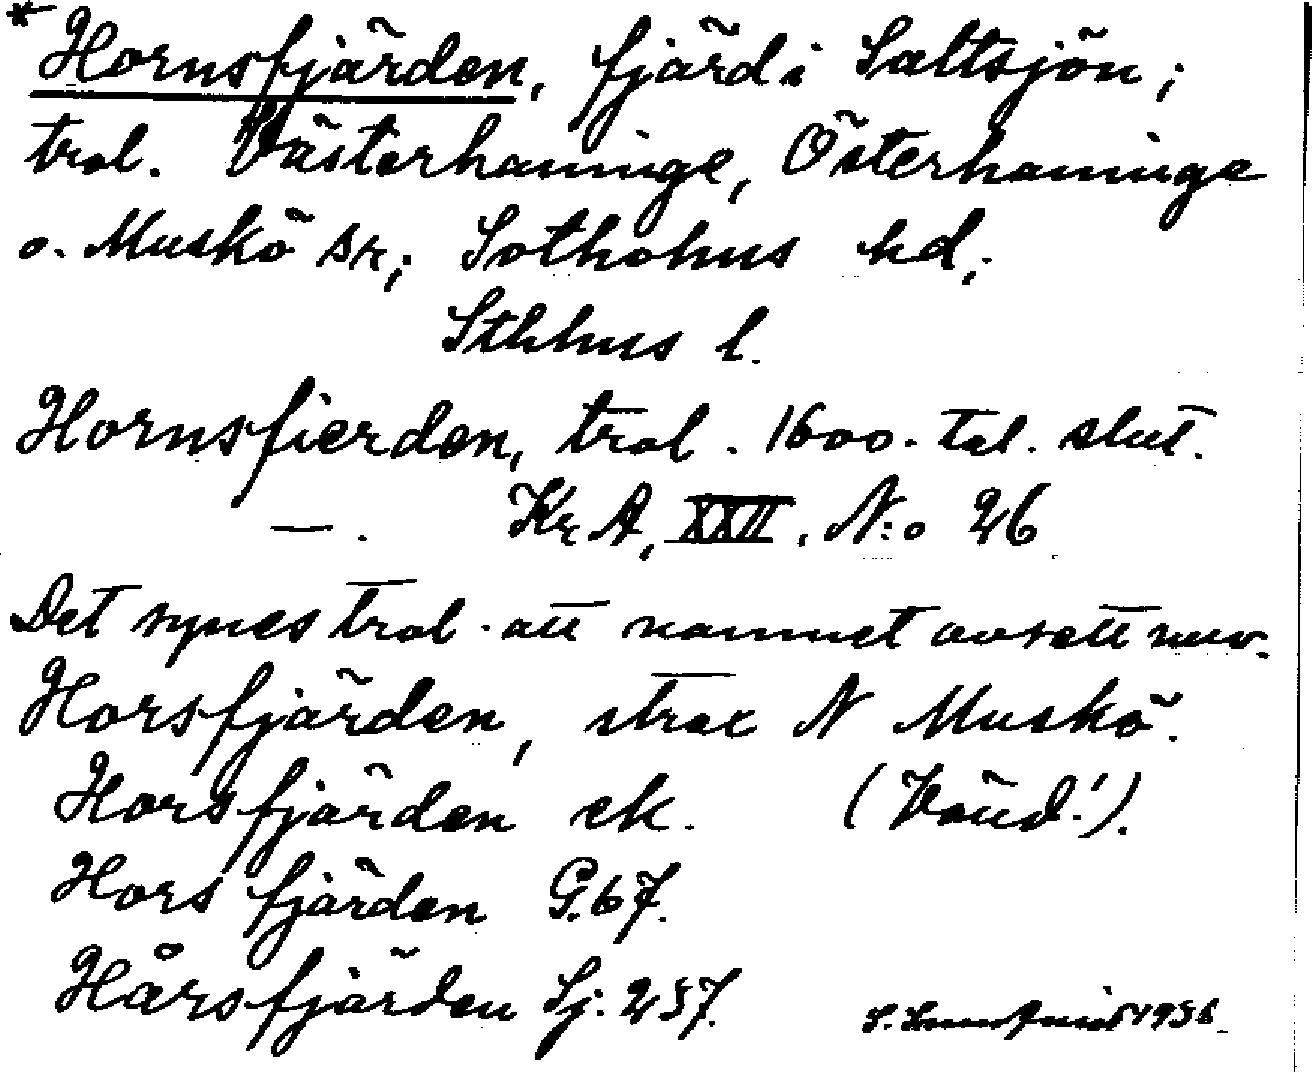 * Hornsfjärden, fjärd i Saltsjön;
trol. Västerhaninge, Österhaninge
o. Muskö sr; Sotholms hd,
Sthlms l.
Hornsfierden, trol. 1600-tal. slut.
—. Kr A, XXII, N:o 26
Det synes trol. att namnet avsett nuv.
Horsfjärden, strax N Muskö.
Horsfjärden ek. (Vänd!).
Hors fjärden G.67.
Hårsfjärden Sj. 257.
S. 1956